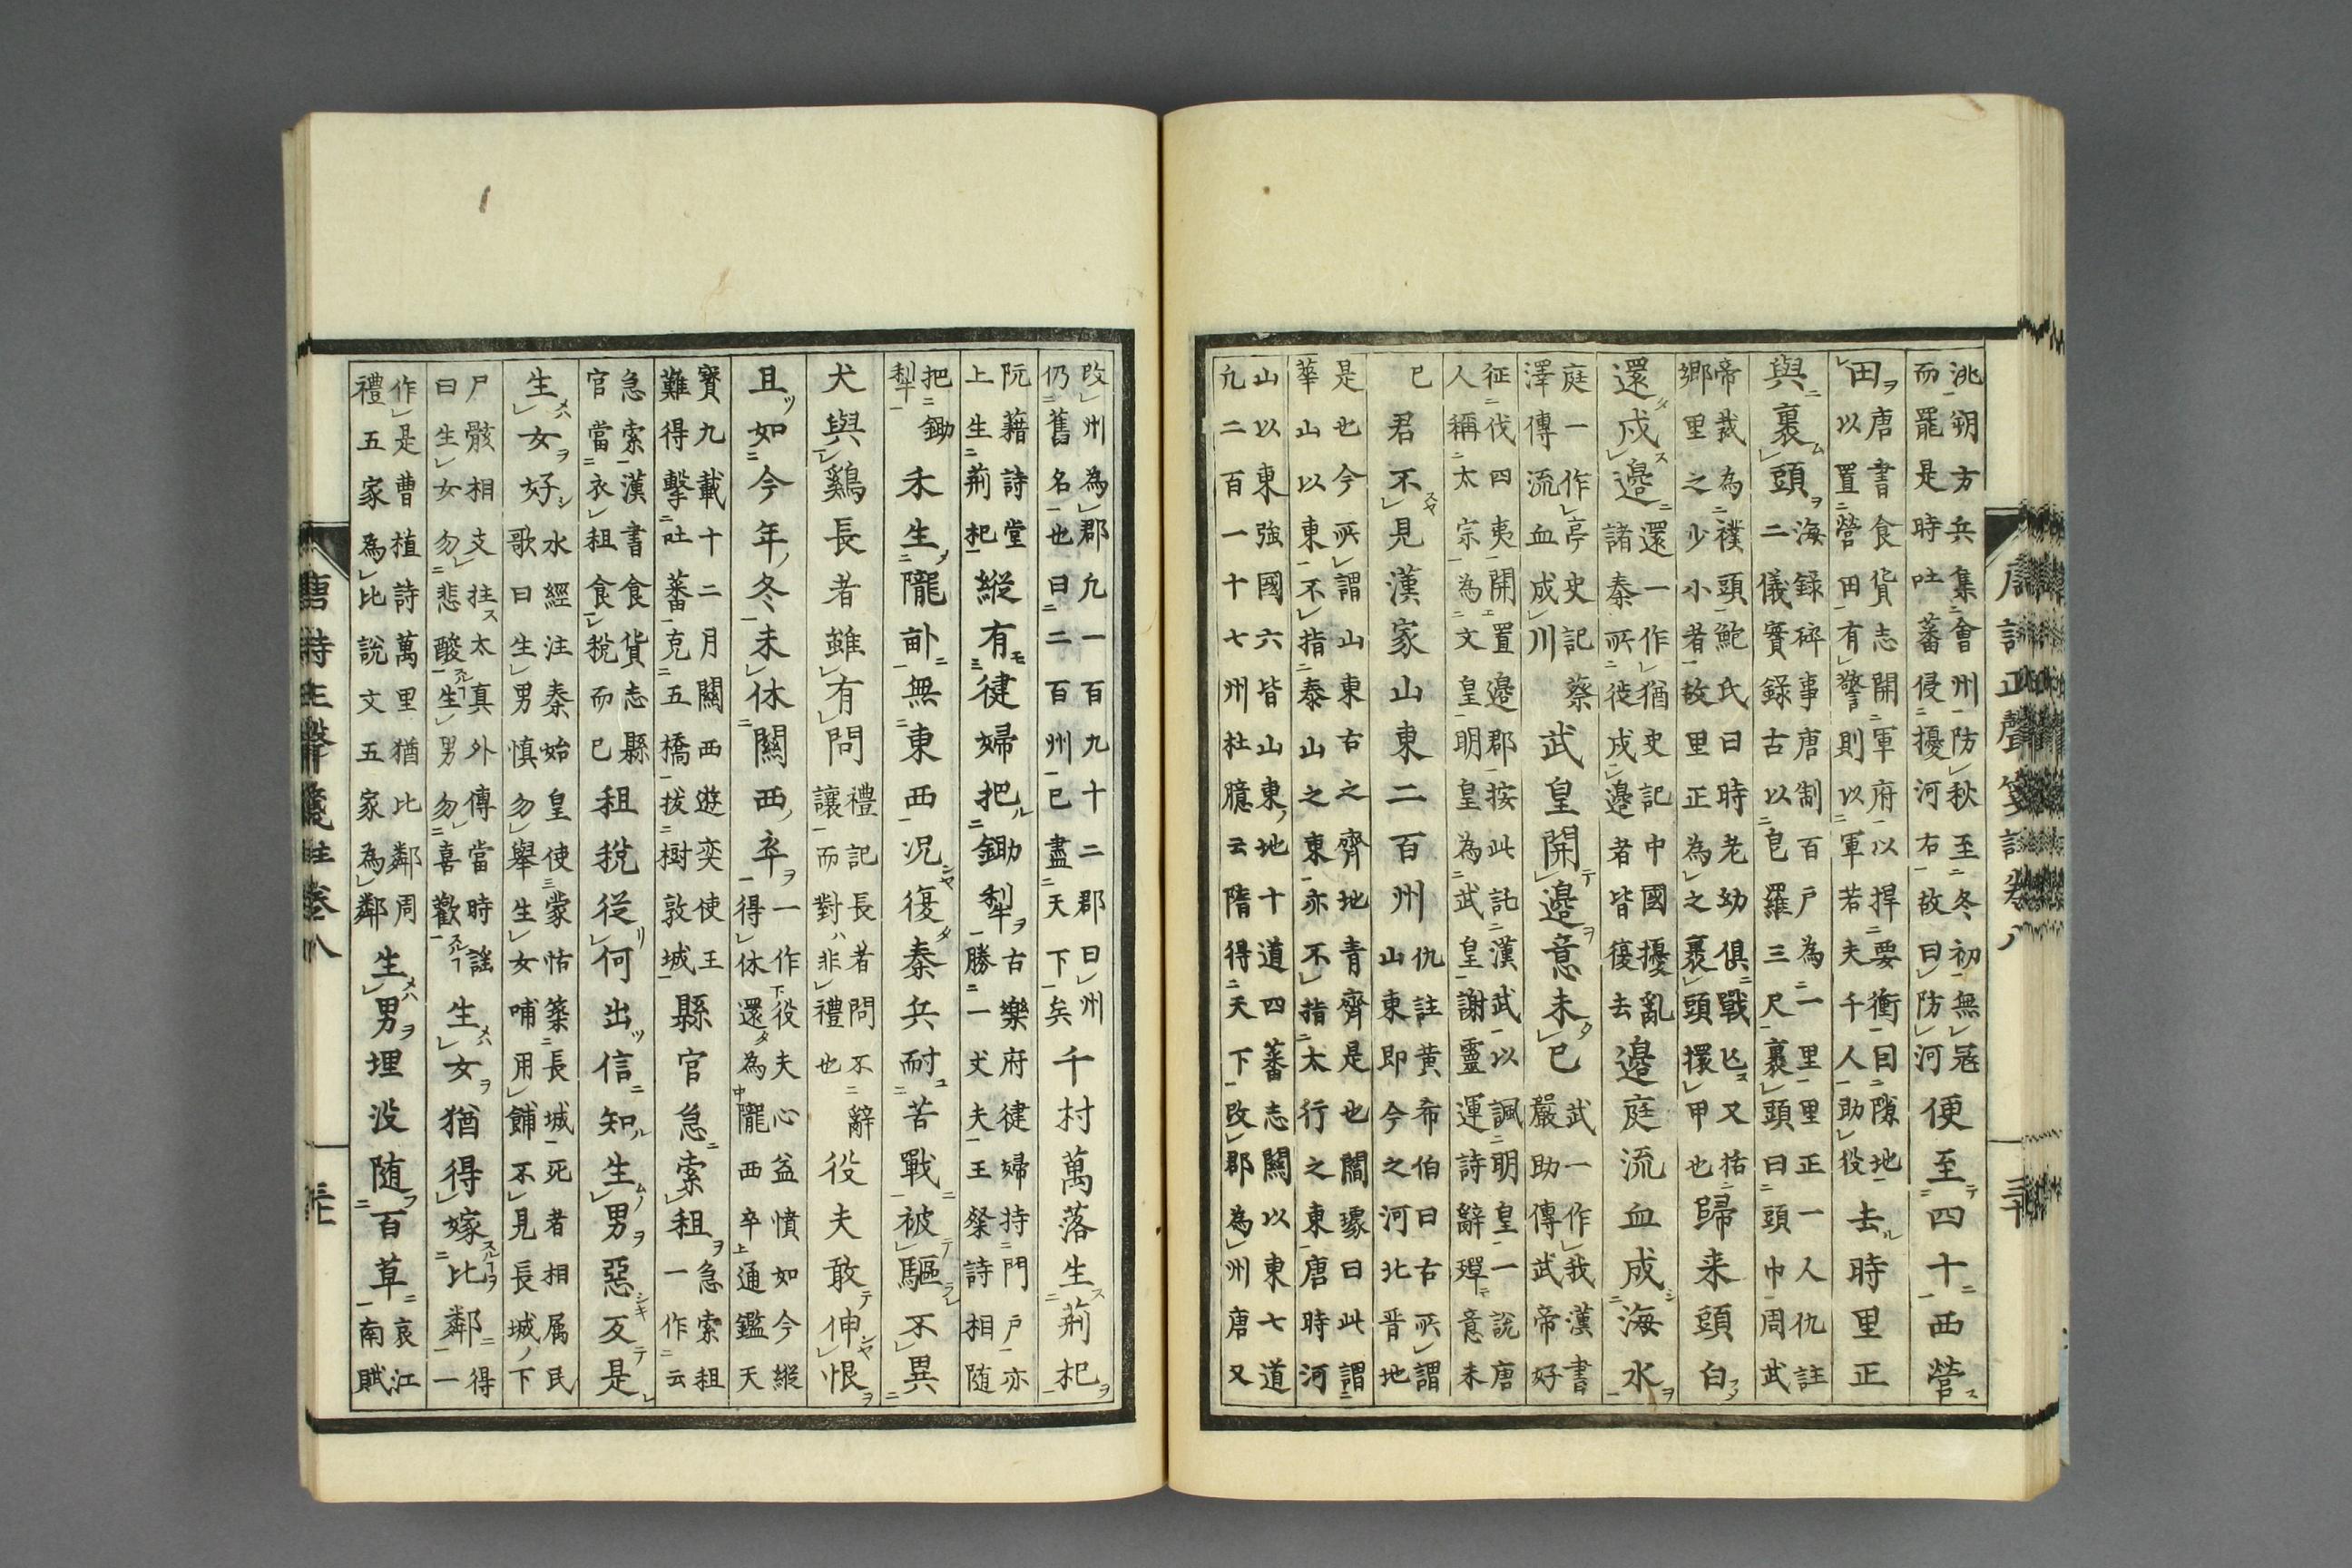 唐詩正聲箋註卷八
三十
洮朔方兵集會州防秋至冬初無寇
而罷是時吐蕃侵擾河右故曰防河
便至四十西營
田
唐書食貨志開軍府以捍要衝曰隙地
以置營田有警則以軍若夫千人助役
去時里正
與裹頭
海録碎事唐制百戶為一里里正一人仇註
二儀實録古以皀羅三尺裹頭曰頭巾周武
帝裁為襆頭鮑氏曰時老幼俱戰亡又括
鄉里之少小者故里正為之裹頭擐甲也
歸来頭白
還戍邊
還一作猶史記中國擾亂
諸秦所徙戍邊者皆復去
邊庭流血成海水
庭一作亭史記蔡
澤傳流血成川
武皇開邊意未已
武一作我漢書
嚴助傳武帝好
征伐四夷開置邊郡按此託漢武以諷明皇一説唐
人稱太宗為文皇明皇為武皇謝靈運詩辭殫意未
已
君不見漢家山東二百州
仇註黄希伯曰古所謂
山東即今之河北晋地
是也今所謂山東古之齊地青齊是也閻璩曰此謂
華山以東不指泰山之東亦不指太行之東唐時河
山以東強國六皆山東地十道四蕃志關以東七道
凢二百一十七州杜臆云隋得天下改郡為州唐又
改州為郡九一百九十二郡曰州
仍舊名也曰二百州已盡天下矣
千村萬落生荊杞
阮藉詩堂
上生荊杞
縱有健婦把鋤犂
古樂府健婦持門戶亦
勝一丈夫王粲詩相随
把鋤
犂
禾生隴畝無東西况復秦兵耐苦戰被驅不異
犬與鷄長者雖有問
禮記長者問不辭
讓而對非禮也
役夫敢伸恨
且如今年冬未休關西卒
一作役夫心益憤如今縱
得休還為隴西卒通鑑天
寳九載十二月關西遊奕使王
難得擊吐蕃克五橋拔樹敦城
縣官急索租
急索租
一作云
急索漢書食貨志縣
官當衣租食稅而已
租稅從何出信知生男惡反是
生女好
水經注秦始皇使蒙恬築長城死者相属民
歌曰生男慎勿舉生女哺用餔不見長城下
尸骸相支拄太真外傳當時謡
曰生女勿悲酸生男勿喜歡
生女猶得嫁比鄰
得
一
作是曹植詩萬里猶比鄰周
禮五家為比說文五家為鄰
生男埋没随百草
哀江
南賦
唐詩正聲箋註卷八